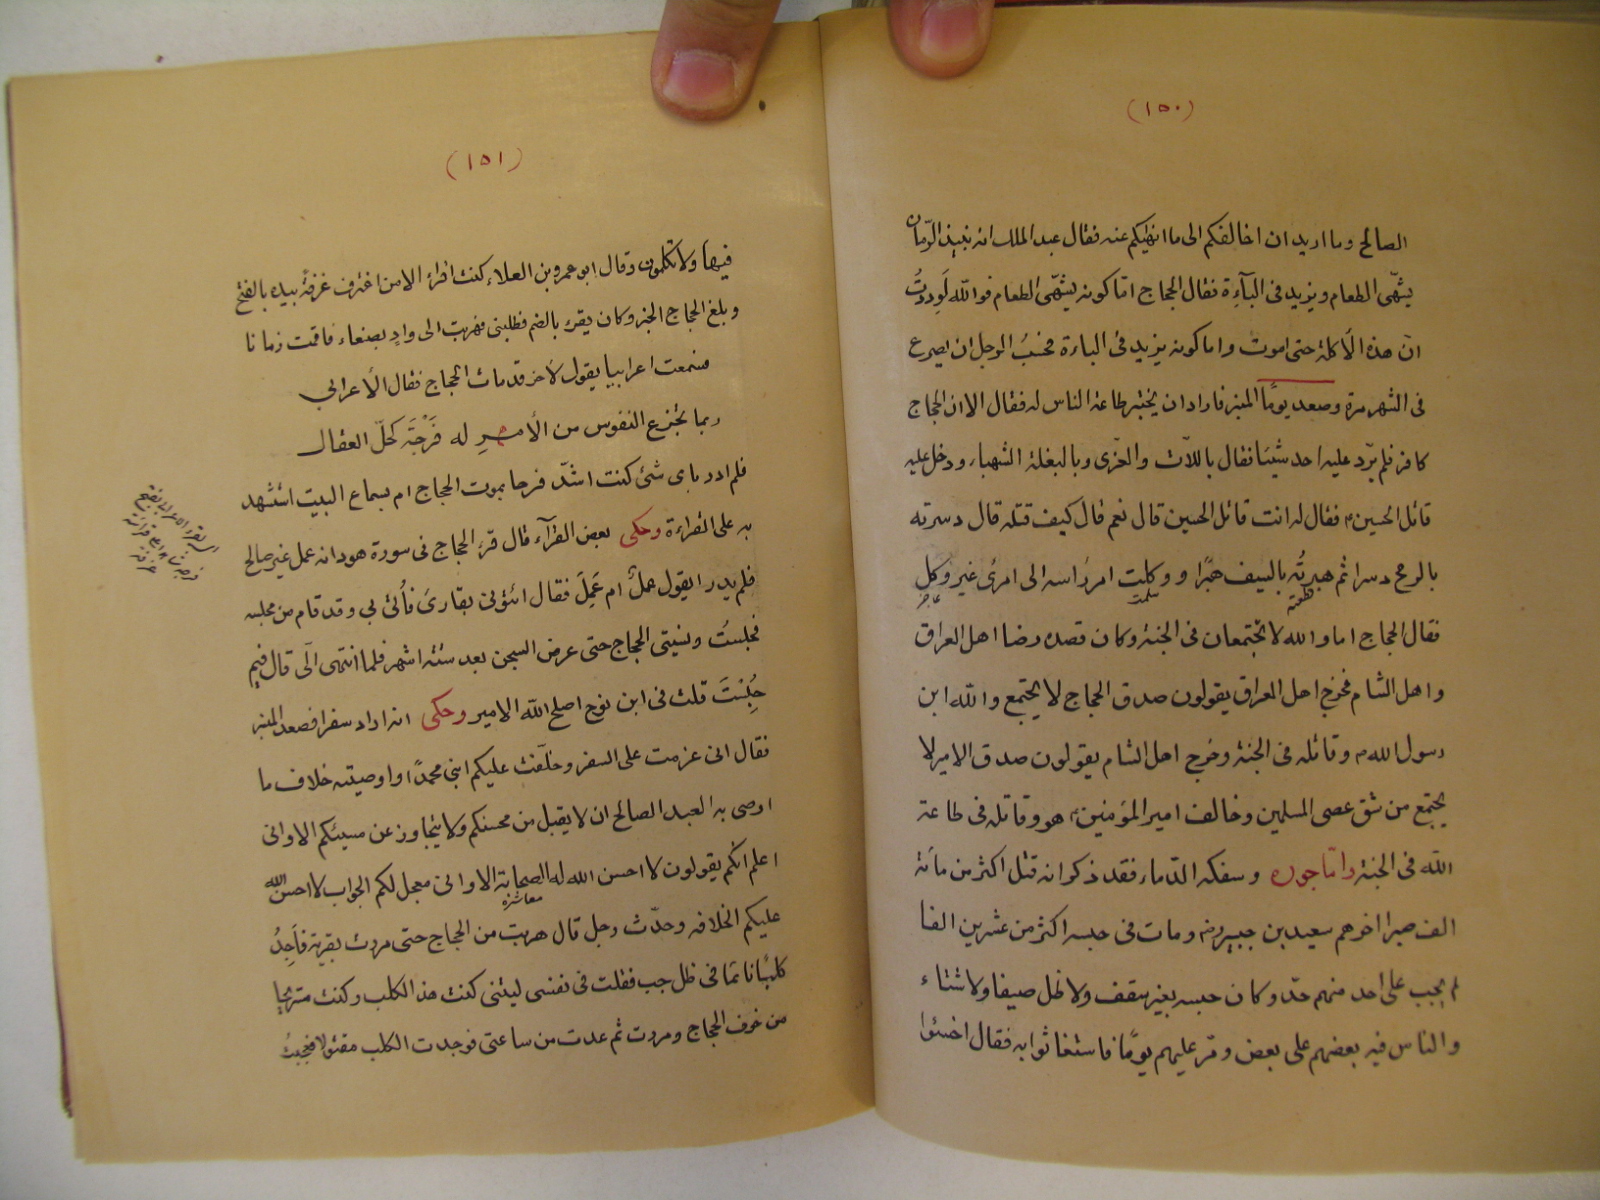 (١٥٠)
الصالح وما اريد ان اخالفكم الى ما انهيكم عنه فقال عبد الملك انه نبيذ الرّمان
يشهّى الطعام ويزيد فى الباءة فقال الحجاج امّا كونه يشهّى الطعام فوالله لَوددتُ
انّ هذه الاكلة حتى اموت واما كونه يزيد فى الباءة فحسبُ الرجل ان يصرع
فى الشهر مرة وصعد يومًا المنبر فاراد ان يختبر طاعة الناس له فقال الا ان الحجاج
كافر فلم يردّ عليه احد شيئا فقال باللّات والعزّى وبالبغلة الشهباء ودخل عليه
قاتل الحسين فقال له انت قاتل الحسين قال نعم قال كيف قتلته قال دسرته
بالرمح دسرا ثم هبرتُه بالسيف هبرًا ووكلت امر راسه الى امرئ غير وكل
فقال الحجاج اما والله لا تجتمعان فى الجنة وكان قصده رضا اهل العراق
واهل الشام فخرج اهل العراق يقولون صدق الحجاج لا يجتمع والله ابن
رسول الله وقاتله فى الجنة وخرج اهل الشام يقولون صدق الامير لا
يجتمع من شق عصى المسلمين وخالف امير المؤمنين هو وقاتله فى طاعة
الله فى الجنة وامّا جوره وسفكه الدّماء فقد ذكر انه قتل اكثر من مائة
الف صبرا اخرهم سعيد بن جبير ومات فى حبسه اكثر من عشرين الفا
لم يجب على احد منهم حدّ وكان حبسه بغير سقف ولا ظل صيفا ولا شتاء
والناس فيه بعضهم على بعض ومرّ عليهم يومًا فاستغاثوا به فقال اخسئوا
(١٥١)
فيها ولا تكلمون وقال ابو عمرو بن العلاء كنت اقرأ الا من اغترف غَرفةً بيده بالفتح
وبلغ الحجاج الخبر وكان يقرء بالضم فطلبنى فهربت الى وادٍ بصنعاء فاقمت زمانا
فسمعت اعرابيا يقول لآخر قد مات الحجاج فقال الأعرابي
ربما تجزع النفوس من الأمر له فَرْجَة كحلّ العقال
فلم ادر باى شئ كنت اشدّ فرحا بموت الحجاج ام بسماع البيت استشهد
به على القراءة وحكى بعض القرآء قال قرء الحجاج فى سورة هود انه عمل غير صالح
فلم يدر ايقول عملٌ ام عَمِلَ فقال ائتونى بقارئ فأُتى بي وقد قام من مجلسه
فحبستُ ونسيتى الحجاج حتى عرض السجن بعد ستة اشهر فلما انتهى الَى قال فيم
حُبِسْتَ قلت فى ابن نوح اصلح الله الامير وحكى انه اراد سفرا فصعد المنبر
فقال انى عزمت على السفر وخلّفت عليكم ابنى محمدًا واوصيته خلاف ما
اوصى به العبد الصالح ان لا يقبل من محسنكم ولا يتجاوز عن مسيئكم الا وانى
اعلم انكم يقولون لا احسن الله له الصحابة الا وانى معجل لكم الجواب لا احسن الله
معاشرة
عليكم الخلافة وحدّث رجل قال هربت من الحجاج حتى مررت بقرية فاجدُ
كلبًا نائما فى ظل جب فقلت فى نفسى ليتنى كنت هذ الكلب وكنت مستريحا
من خوف الحجاج ومررت ثم عدت من ساعتى فوجدت الكلب مقتولا فعجبتُ